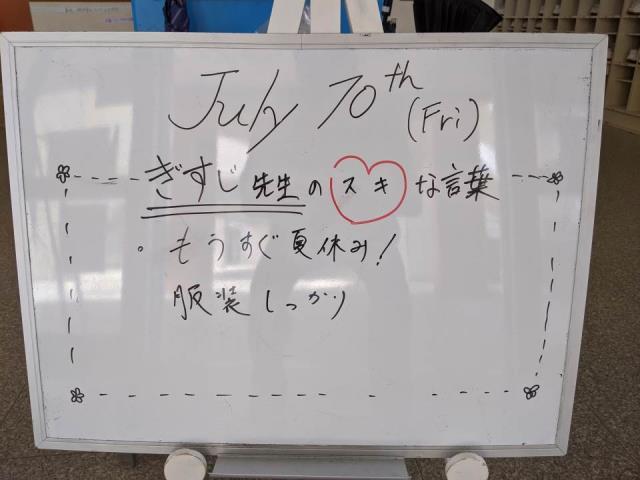 July 10th
(Fri)
ぎすじ先生のスキな言葉
。もうすぐ夏休み!
服装しっかり